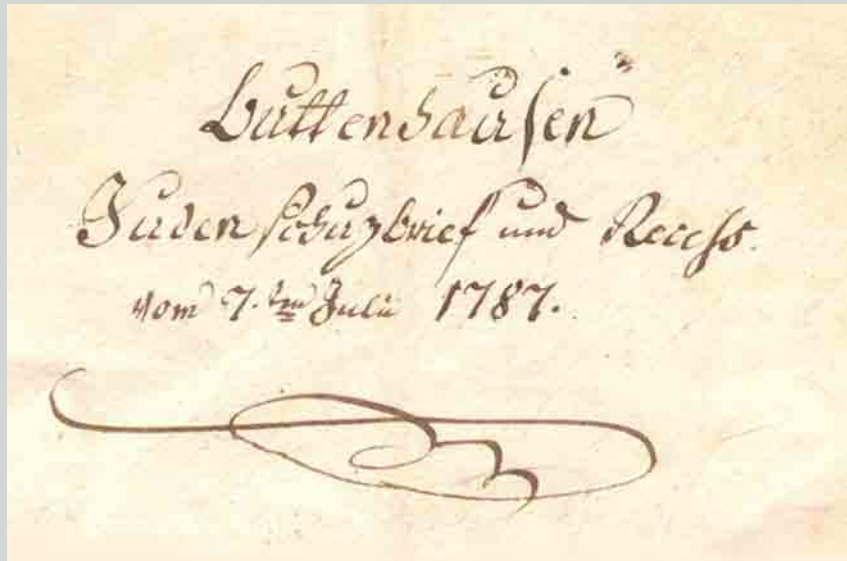 Buttenhausen
Juden Schuzbrief und Recess.
vom 7.ten Julii 1787.